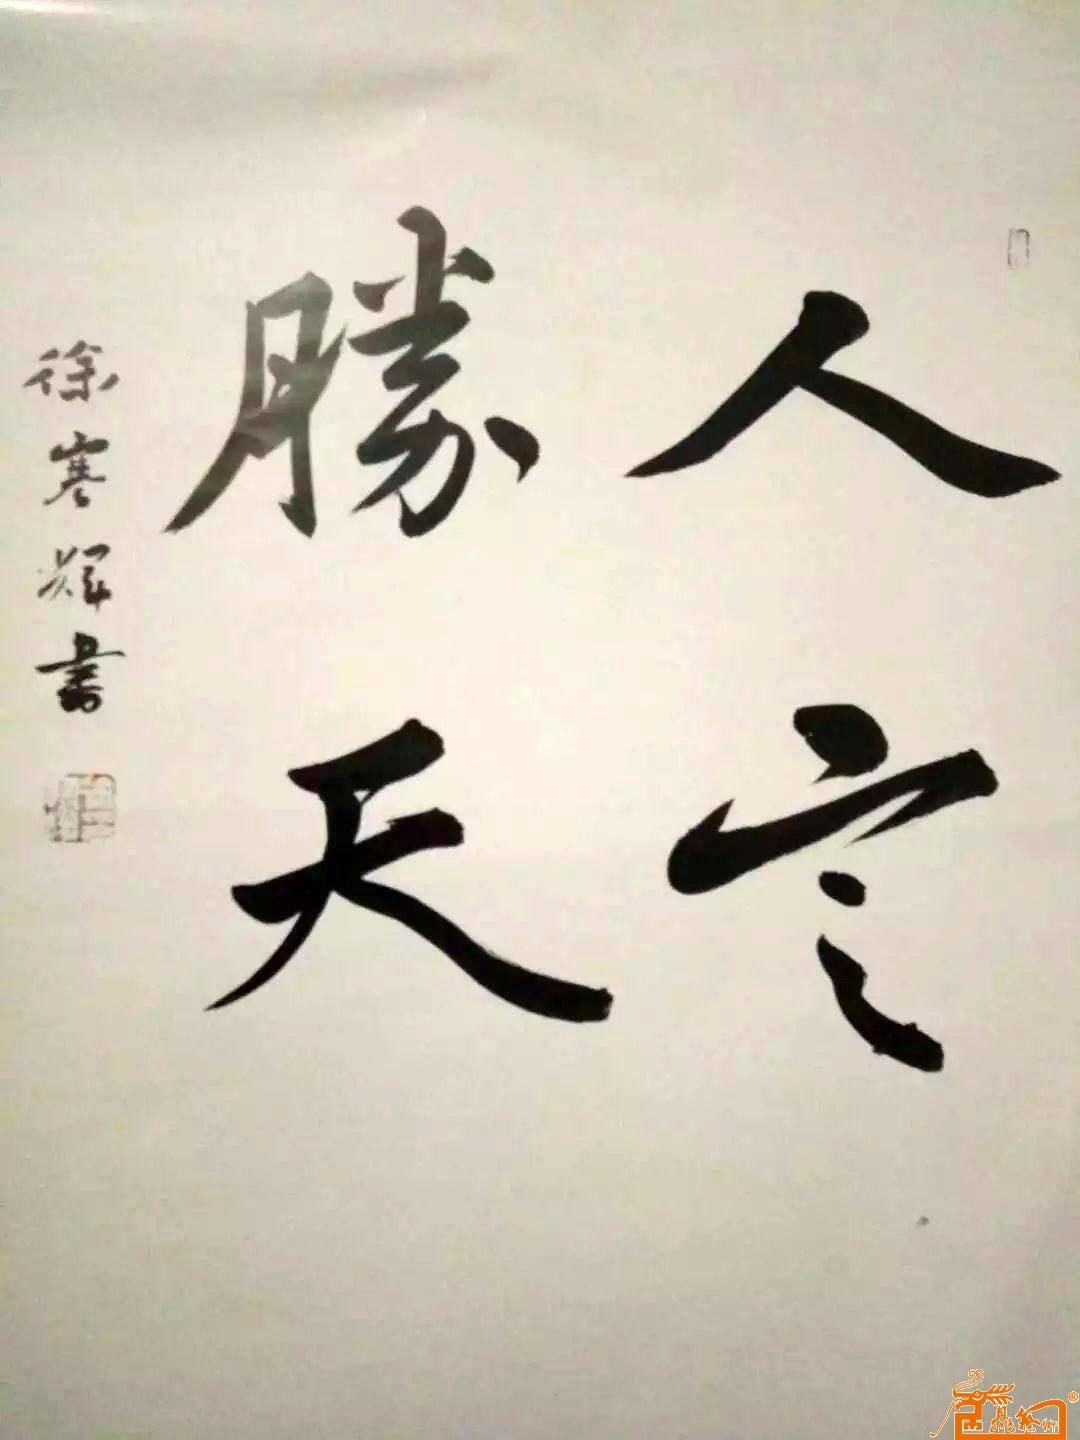 人定
勝天
徐寒輝書